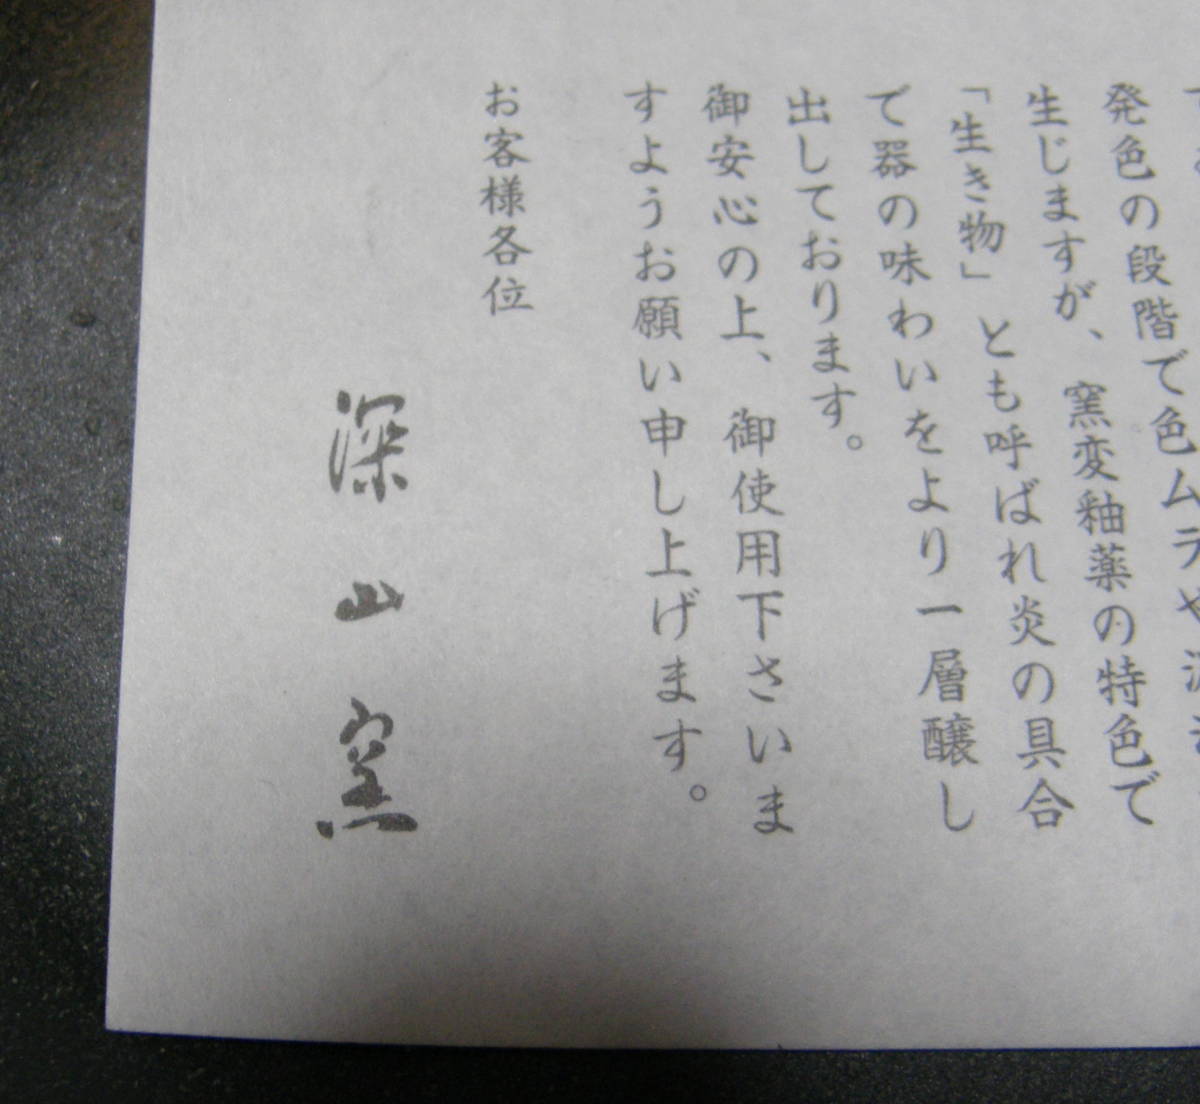 発色の段階で色ムラや
生じますが、窯変釉薬の特色で
「生き物」とも呼ばれ炎の具合
で器の味わいをより一層醸し
出しております。
御安心の上、御使用下さいま
すようお願い申し上げます。
お客様各位
深山窯